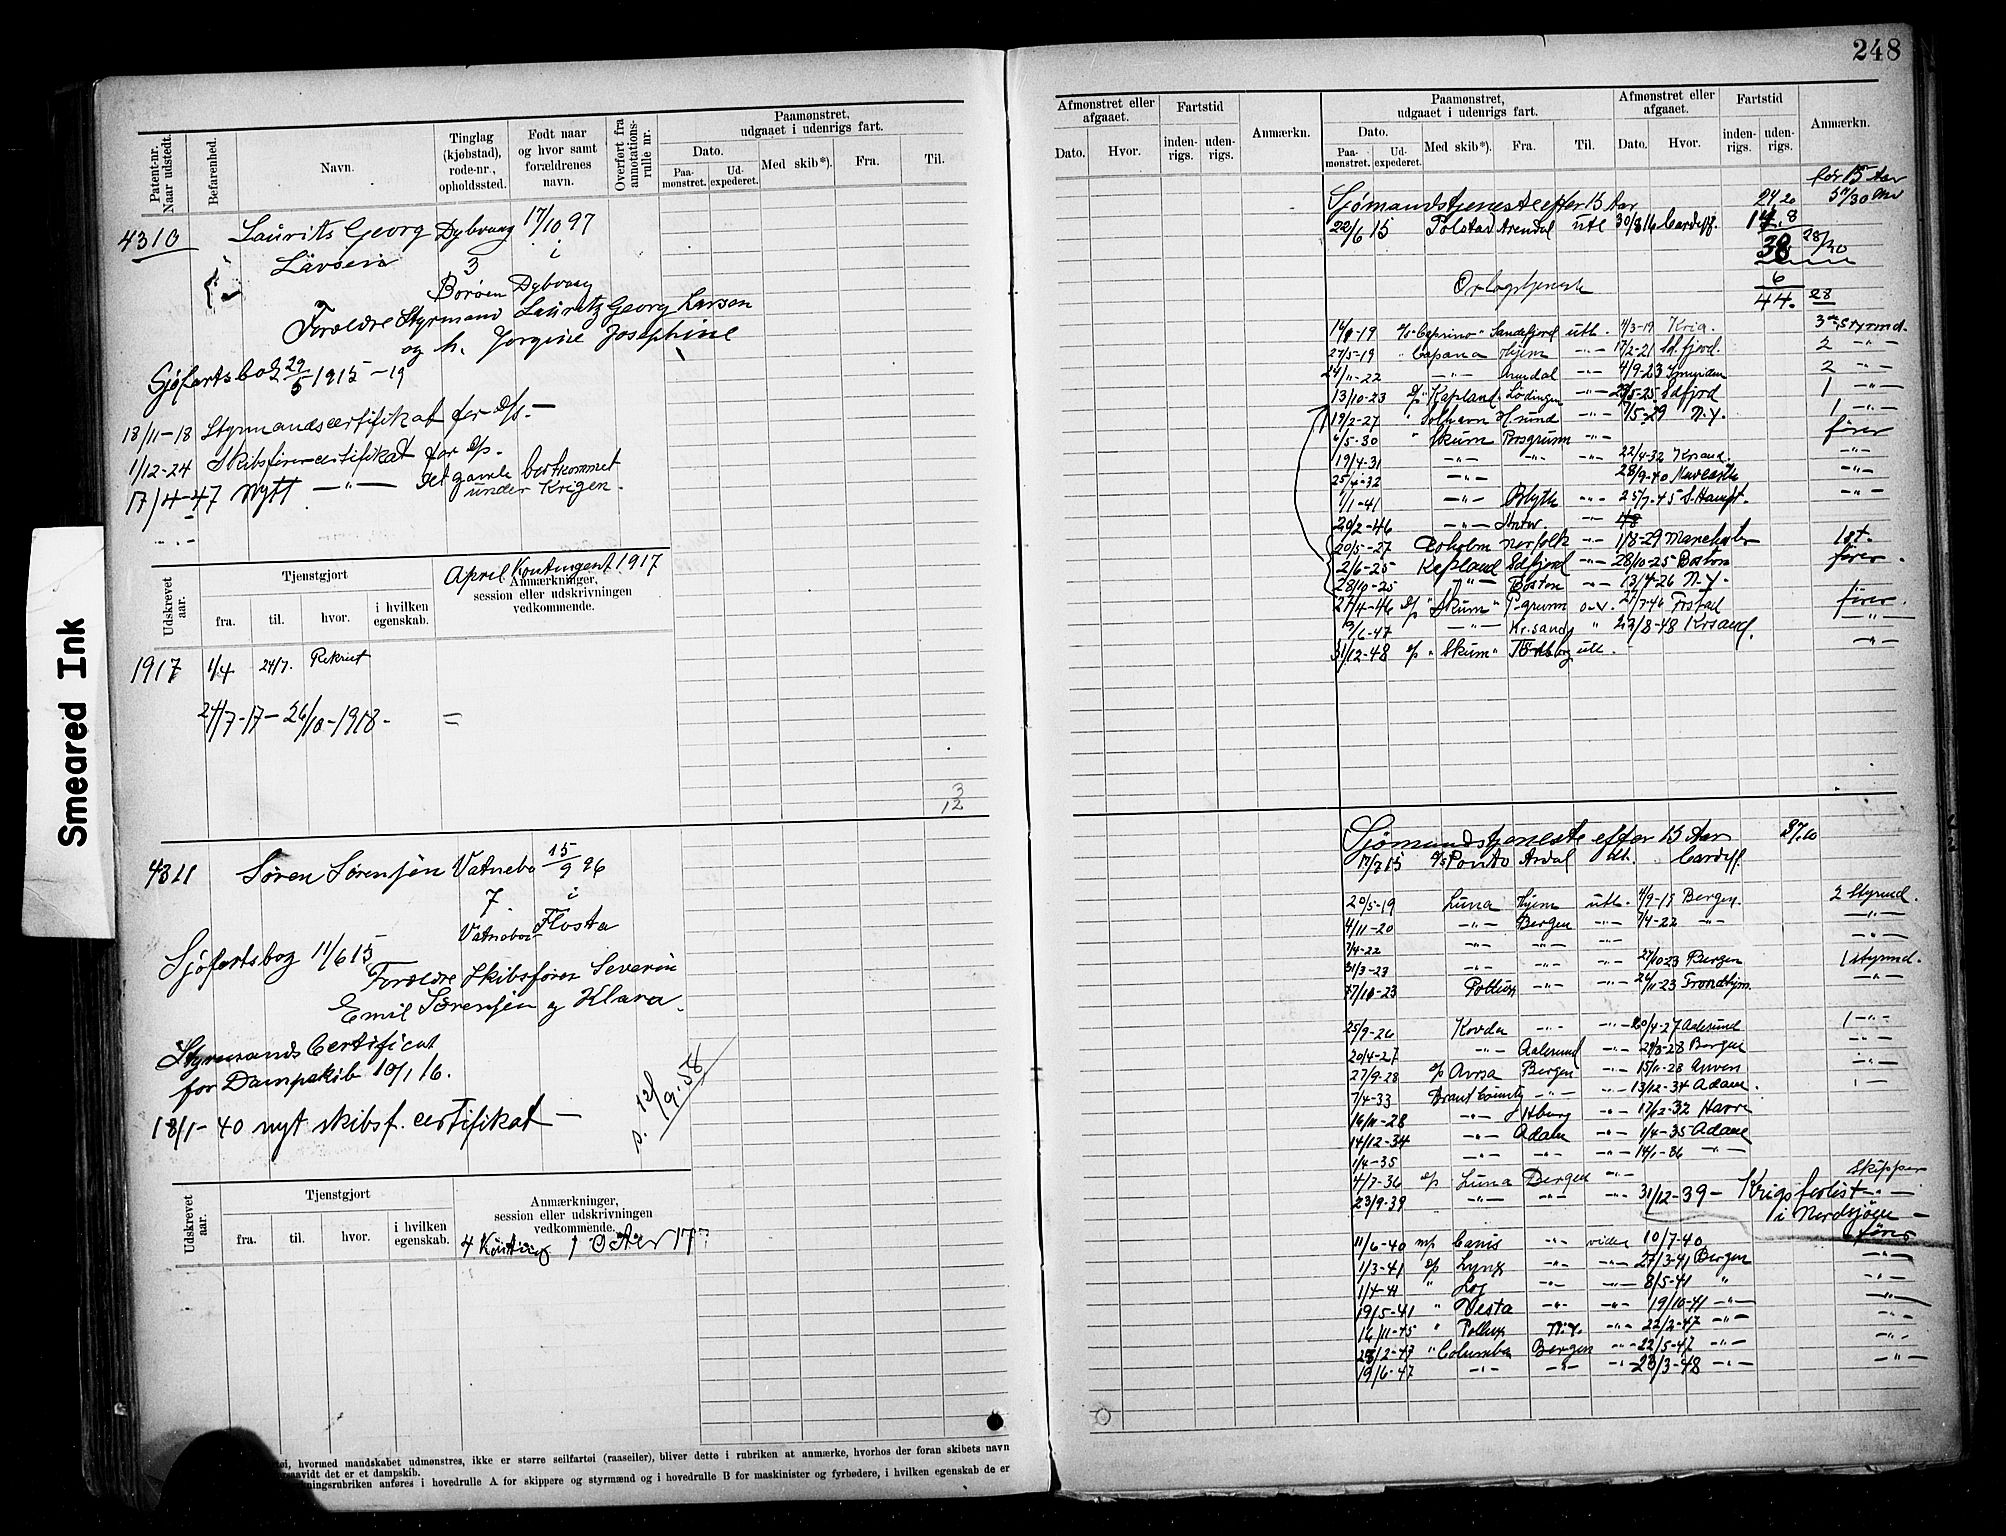 248
Smeared Ink
Patent-nr. Naar udstedt.
Befarenhed.
Navn.
Tinglag (kjøbstad), rode-nr., opholdssted.
Født naar og hvor samt forældrenes navn.
Overført fra annotationsrulle nr.
Paamønstret, udgaaet i udenrigs fart.
Dato.
Paamonstret.
Udexpederet.
Med skib*).
Fra.
Til.
4310
Laurits Georg Dybvaag 17/10 97
3 i
Borøen Dybvaag
Forældre Styrmand Lauritz Georg Larsen
og h. Jørgine Josephine
Sjøfartsbog 29/5 1915 - 19
18/11-18 Styrmandscertifikat for D/s. —
1/12-24 Skibsførercertifikat for D/s.
17/4-47 Nytt —"— det gamle bortkommet
under Krigen.
Udskrevet aar.
Tjenstgjort
fra.
til.
hvor.
i hvilken egenskab.
April Kontingent 1917
Anmærkninger, session eller udskrivningen vedkommende.
1917 1/4 24/7. Rekrut
24/7-17 - 26/10-1918 - =
3
12
4311 Søren Sørensen Vatnebo 15/9 96
7. i
Vatnebo Flosta
Sjøfartsbog 11/6 15
Forældre Skibsfører Severin
Emil Sørensen og Klara.
Styrmands Certificat
for Dampskib 10/1 16.
18/1-40 nyt skibsf. certifikat —
p. 12/9-58
Udskrevet aar.
Tjenstgjort
fra.
til.
hvor.
i hvilken egenskab.
Anmærkninger, session eller udskrivningen vedkommende.
hvormed mandskabet udmønstres, ikke er større seilfartøi (raaseiler), bliver dette i rubriken at anmærke, hvorhos der foran skibets navn
det er et dampskib.
anføres i hovedrulle A for skippere og styrmænd og i hovedrulle B for maskinister og fyrbødere, i hvilken egenskab de er
Afmønstret eller afgaaet.
Dato.
Hvor.
Fartstid
indenrigs.
udenrigs.
Anmærkn.
Paamønstret, udgaaet i udenrigs fart.
Dato.
Paamønstret.
Udexpederet.
Med skib*).
Fra.
Til.
Afmønstret eller afgaaet.
Dato.
Hvor.
Fartstid
indenrigs.
udenrigs.
Anmærkn.
før 15 Aar
Sjømandstjeneste efter 15 Aar 24.20
22/6 15 Arendal utl 30/8 16 Cardiff.
38 28/30
Orlogstjeneste 6
44. 28
"Caprino" Sandefjord utl. Krig. 3die styrmd.
27/5-19 " Capana Hjem —"— 17/2-21 Sd.fjord. 2 —"—
24/11-22 —"— Arendal —"— 4/9-23 2 —"—
13/10-23 D/s "Kapland" Lødingen —"— Sdfjord 1 —"—
19/2-27 " Solhavn H.sund —"— N.Y. 1 —"—
6/5-30 " Skum Porsgrunn —"— fører
19/4-31 —"— —"— —"— 22/4-32 Krsand. —"—
25/4-32 —"— 28/9-40 Newcastle —"—
1/1-41 —"— Blyth —"— 25/7-45 S.Hampt. —"—
20/2-46 —"— Antw. —"—
20/5-27 Norfolk —"— 1/8-29 Manchester 1st.
2/6-25 Kapland Sdfjord —"— 28/10-25 Boston fører.
28/10-25 —"— Boston —"— 13/4-26 N.Y.
27/4-46 D/s "Skum" P.grunn 27/7-46 Frstad fører.
/6-47 —"— Kr.sand " 23/8-48 Krsand. —"—
31/12-48 D/s "Skum" utl. —"—
Sjømandstjeneste efter 15 Aar 37.10
D/s Ponto Ardal Utl. Cardiff
20/5-19 Luna Hjem utl. 4/9-19 Bergen. 2 Styrmd.
4/11-20 —"— Bergen —"— 7/4-22 —"— —"—
7/4-22 —"— —"— —"— —"—
31/3-23 —"— —"— 27/10-23 Bergen 1 styrmd.
Pollux —"— 26/11-23 Trondhjem. —"—
25/9-26 Kovda —"— 20/4-27 Aalesund 1 —"—
20/4-27 —"— Aalesund —"— Bergen —"—
27/9-28 D/s Avrsa Bergen —"— 15/11-28
7/4-33 Brant County —"— 13/12-34 Adam.
16/11-28 —"— —"— 17/12-32 Havre
14/12-34 —"— Adam —"— 1/4-35 Adam
1/4-35 —"— —"— —"— 14/1-36 —"—
4/7-36 D/s Luna Bergen —"— Skipper
23/9-39 —"— —"— —"— 31/12-39 - Krigsforlist —"—
i Nordsjøen —
11/6-40 m/s Canis —"— 10/7-40 fører
1/3-41 D/s Lynx —"— —"— 27/3-41 Bergen —"—
1/4-41 " —"— —"— 8/5-41 " —"—
19/5-41 " Vesta —"— —"— 19/10-41 —"— —"—
16/11-45 " Pollux N.Y. —"— 22/2-47 —"— —"—
28/2-47 " Columba Bergen —"— 22/5-47 —"— —"—
19/6-47 —"— —"— —"— 23/3-48 —"— —"—